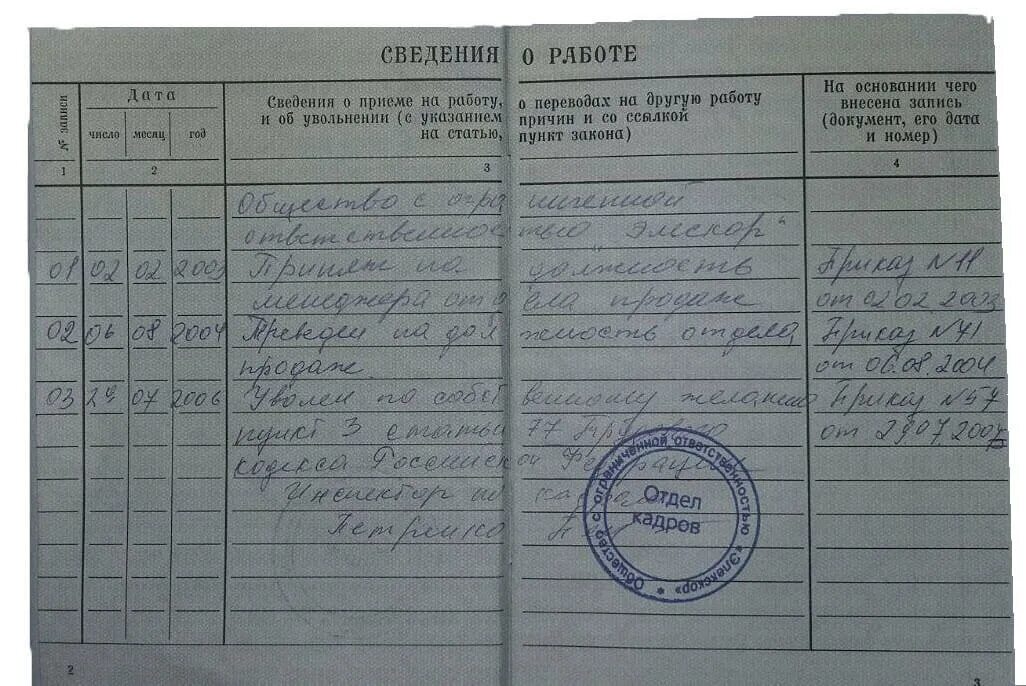 СВЕДЕНИЯ О РАБОТЕ
№ записи
Дата
число месяц год
Сведения о приеме на работу, о переводах на другую работу
и об увольнении (с указанием причин и со ссылкой
на статью, пункт закона)
На основании чего
внесена запись
(документ, его дата
и номер)
1 2 3 4
Общество с ограниченной
ответственностью "Элескор"
01 02 02 2003 Принят на должность Приказ N11
менеджера отдела продаж от 02.02.2003
02 06 08 2004 Преведен на должность отдела Приказ N41
продаж. от 06.08.2004
03 29 07 2006 Уволен по собственному желанию Приказ N57
пункт 3 статьи 77 от 29.07.2007
кодекса Российской Федерации
Инспектор по кадрам
Петренко
Общество с ограниченной ответственностью «Элескор» *
Отдел
кадров
2 3